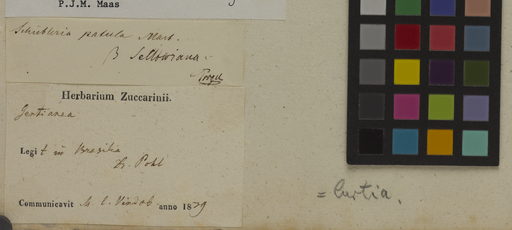 P.J.M. Maas
Schübleria patula Mart.
β Sellowiana
Progel
Herbarium Zuccarinii.
Gentianea
Legit in Brasilia
Pohl
Communicavit M. C. Vindob. anno 1839
= Curtia.